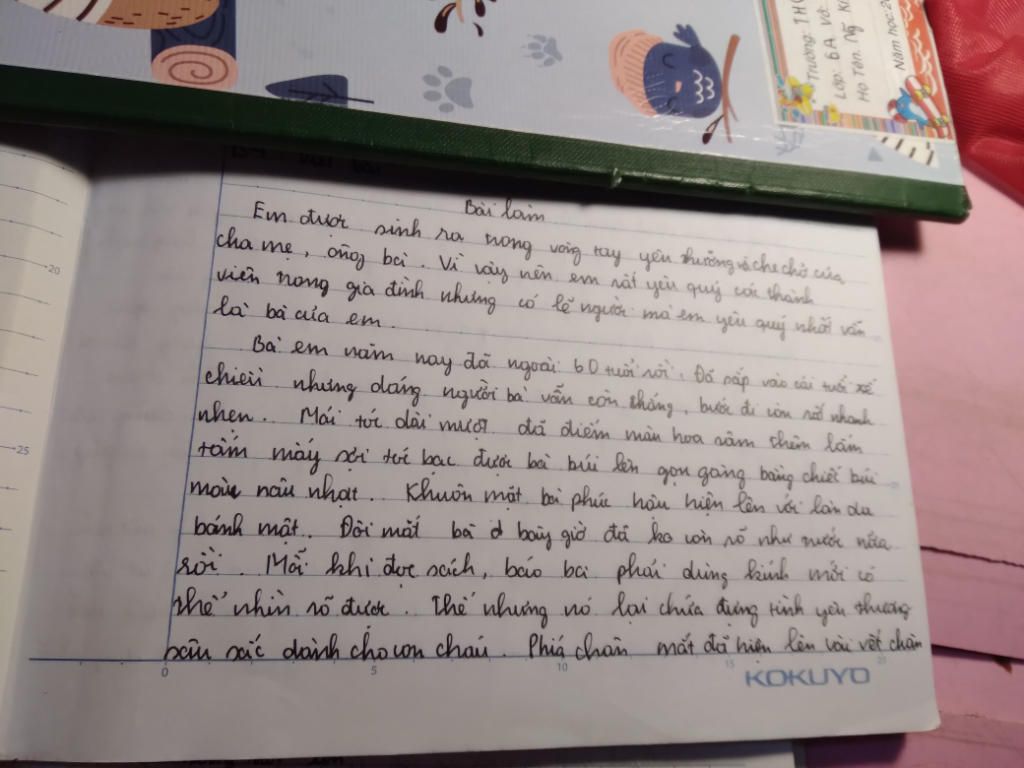 Trường: TH
Lớp: 6A
Họ Tên:
Năm học: 20
Bài làm
Em được sinh ra trong vòng tay yêu thương và che chở của
cha mẹ, ông bà. Vì vậy nên em rất yêu quý các thành
viên trong gia đình nhưng có lẽ người mà em yêu quý nhất vẫn
là bà của em.
Bà em năm nay đã ngoài 60 tuổi rồi. Đã sắp vào cái tuổi xế
chiều nhưng dáng người bà vẫn còn thẳng, bước đi còn rất nhanh
nhẹn. Mái tóc dài mượt đã điểm màu hoa râm thêm lấm
tấm mấy sợi tóc bạc được bà búi lên gọn gàng bằng chiếc búi
màu nâu nhạt. Khuôn mặt bà phúc hậu hiện lên với làn da
bánh mật. Đôi mắt bà bây giờ đã ko còn rõ như trước nữa
rồi. Mỗi khi đọc sách, báo bà phải dùng kính mới có
thể nhìn rõ được. Thế nhưng nó lại chứa đựng tình yêu thương
sâu sắc dành cho con cháu. Phía chân mắt đã hiện lên vài vết chân
20
25
0
5
10
15
KOKUYO